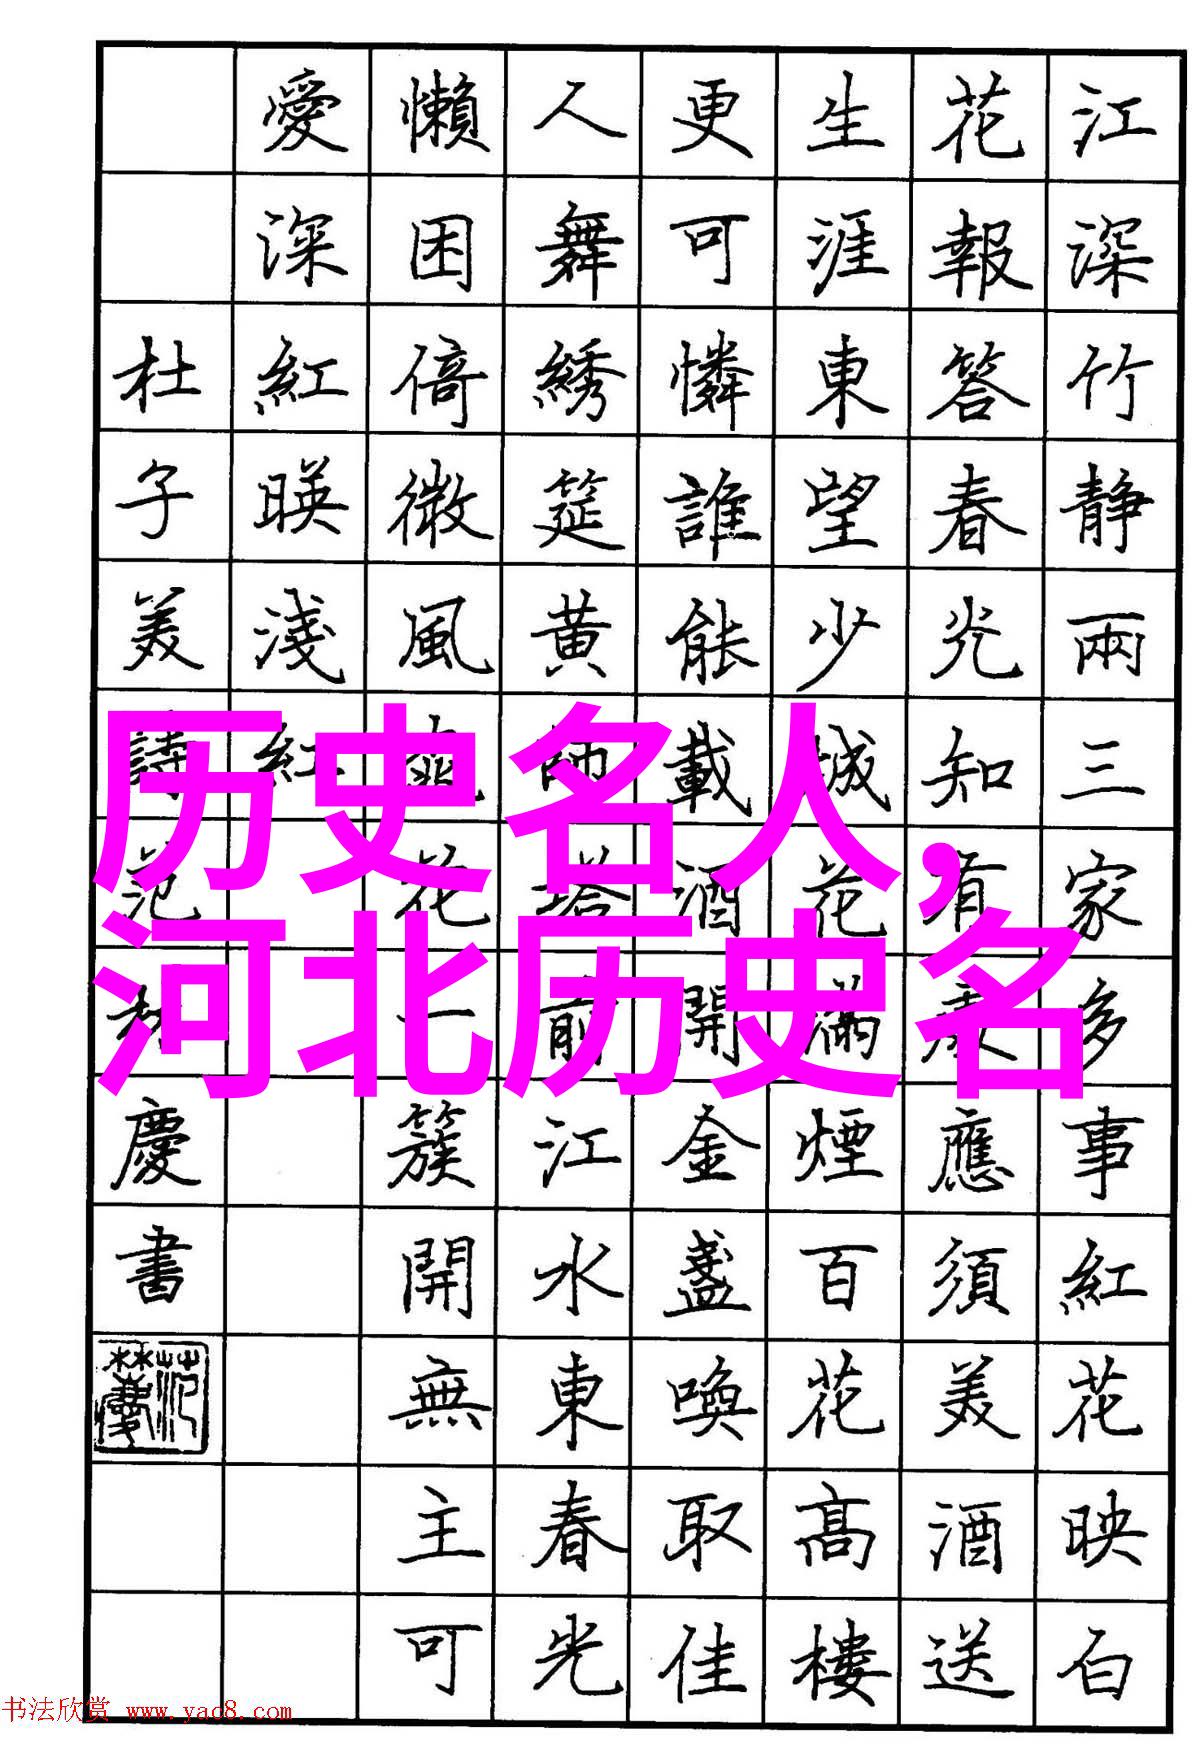 江深竹静兩三家多事紅花映白
花報答春光知有處應須美酒送
生涯東望少城花滿煙百花高樓
更可憐誰能載酒開金盞喚取佳
人舞綉筵黄師塔前江水東春光
懶困倚微風桃花一簇開無主可
愛深紅暎淺紅
杜子美詩范林慶書
历史名人,
河北历史名
书法欣赏 www.yac8.com